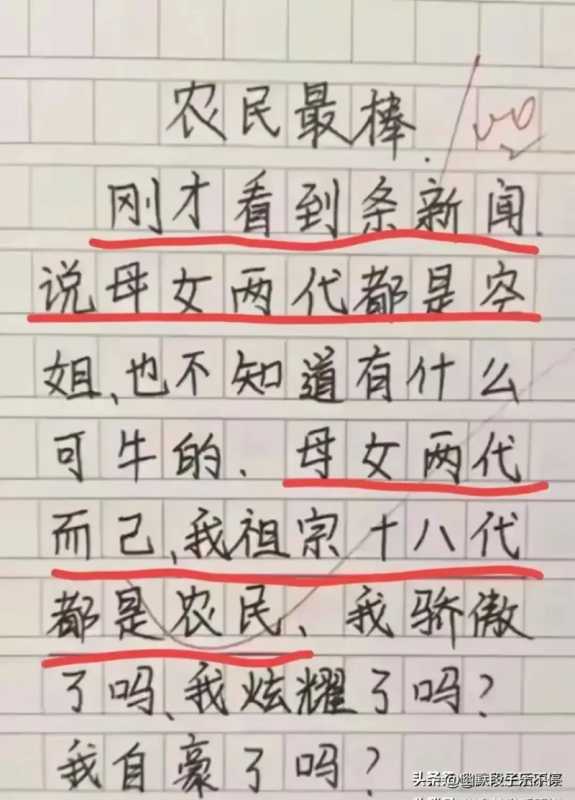 农民最棒.
刚才看到条新闻.
说母女两代都是空
姐、也不知道有什么
可牛的、母女两代
而己、我祖宗十八代
都是农民、我骄傲
了吗、我炫耀了吗?
我自豪了吗?
头条@幽默段子乐不停